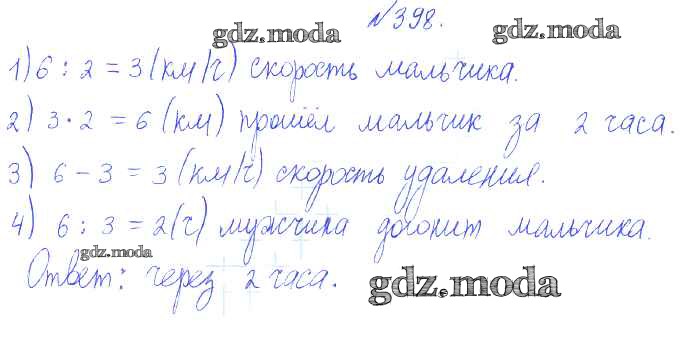 №398.
gdz.moda gdz.moda
1) 6 : 2 = 3 (км/ч) скорость мальчика.
2) 3 · 2 = 6 (км) прошёл мальчик за 2 часа.
3) 6 - 3 = 3 (км/ч) скорость удаления.
4) 6 : 3 = 2 (ч) мужчина догонит мальчика.
gdz.moda
Ответ: через 2 часа.
gdz.moda